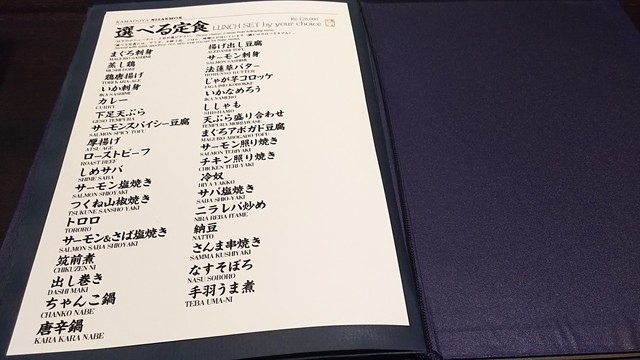 KAMADOYA NIZAEMON
Rp.128,000
選べる定食 LUNCH SET by your choice
まぐろ刺身
MAGURO SASHIMI
蒸し鶏
MUSHI DORI
鶏唐揚げ
TORI KARA-AGE
いか刺身
IKA SASHIMI
カレー
CURRY
下足天ぷら
GESO TEMPURA
サーモンスパイシー豆腐
SALMON SPICY TOFU
厚揚げ
ATSU-AGE
ローストビーフ
ROAST BEEF
しめサバ
SHIME SABA
サーモン塩焼き
SALMON SHIOYAKI
つくね山椒焼き
TSUKUNE SANSHO YAKI
トロロ
TORORO
サーモン&さば塩焼き
SALMON SABA SHIOYAKI
筑前煮
CHIKUZEN NI
出し巻き
DASHIMAKI
ちゃんこ鍋
CHANKO NABE
唐辛鍋
KARA KARA NABE
揚げ出し豆腐
AGEDASHI TOFU
サーモン刺身
SALMON SASHIMI
法蓮草バター
HORENSO BUTTER
じゃが芋コロッケ
JAGAIMO KOROKKE
いかなめろう
IKA NAMERO
ししゃも
SHISHAMO
天ぷら盛り合わせ
TEMPURA MORIAWASE
まぐろアボガド豆腐
MAGURO ABOGADO TOFU
サーモン照り焼き
SALMON TERIYAKI
チキン照り焼き
CHICKEN TERI-YAKI
冷奴
HIYA YAKKO
サバ塩焼き
SABA SHIO-YAKI
ニラレバ炒め
NIRA REBA ITAME
納豆
NATTO
さんま串焼き
SAMMA KUSHIYAKI
なすそぼろ
NASU SOBORO
手羽うま煮
TEBA UMA-NI